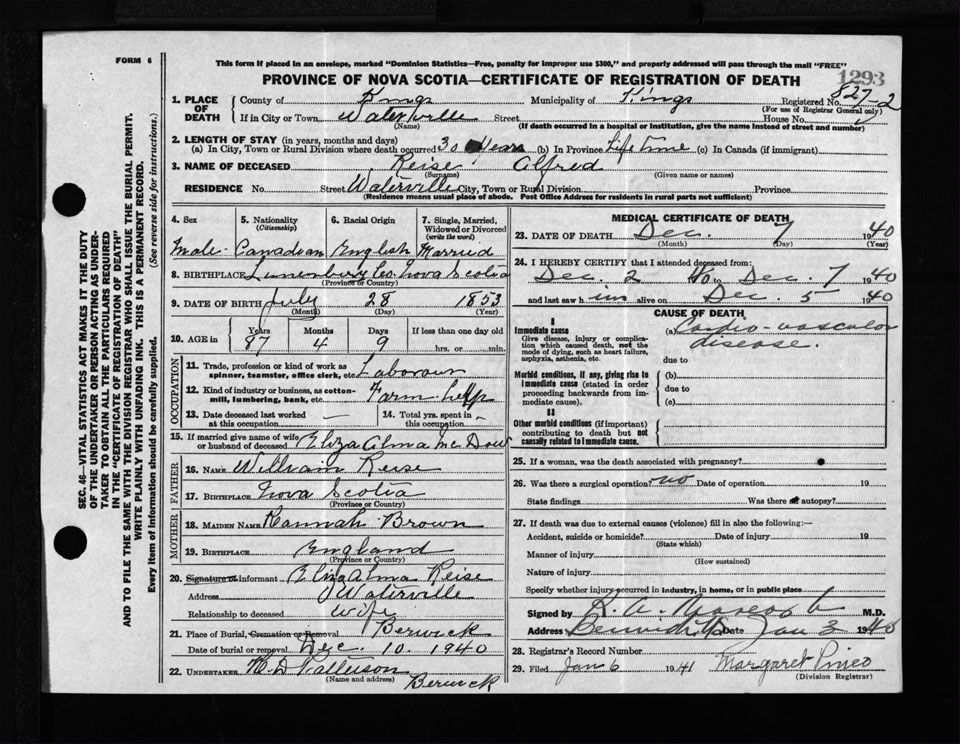 FORM 6
This form if placed in an envelope, marked "Dominion Statistics—Free, penalty for improper use $300," and properly addressed will pass through the mail "FREE"
PROVINCE OF NOVA SCOTIA—CERTIFICATE OF REGISTRATION OF DEATH
1293
1. PLACE OF DEATH
County of Kings Municipality of Kings Registered No. 827-2
(For use of Registrar General only)
If in City or Town Waterville Street House No.
(Name) (If death occurred in a hospital or institution, give the name instead of street and number)
2. LENGTH OF STAY (in years, months and days)
(a) In City, Town or Rural Division where death occurred 30 Years (b) In Province Life Time (c) In Canada (if immigrant)
3. NAME OF DECEASED Reise Alfred
(Surname) (Given name or names)
RESIDENCE No. Street Waterville City, Town or Rural Division Province
(Residence means usual place of abode. Post Office Address for residents in rural parts not sufficient)
4. Sex 5. Nationality (Citizenship) 6. Racial Origin 7. Single, Married, Widowed or Divorced (write the word)
male Canadian English Married
8. BIRTHPLACE Lunenburg Co. Nova Scotia
(Province or Country)
9. DATE OF BIRTH July 28 1853
(Month) (Day) (Year)
10. AGE in Years Months Days If less than one day old
87 4 9 hrs. or min.
OCCUPATION
11. Trade, profession or kind of work as spinner, teamster, office clerk, etc. Labourer
12. Kind of industry or business, as cotton-mill, lumbering, bank, etc. Farm help
13. Date deceased last worked at this occupation — 14. Total yrs. spent in this occupation -
15. If married give name of wife or husband of deceased Eliza Alma
FATHER
16. NAME William Reise
17. BIRTHPLACE Nova Scotia
(Province or Country)
MOTHER
18. MAIDEN NAME Hannah Brown
19. BIRTHPLACE England
(Province or Country)
20. Signature of informant Eliza Alma Reise
Address Waterville
Relationship to deceased wife
21. Place of Burial, Cremation or Removal Berwick
Date of burial or removal Dec. 10. 1940
22. UNDERTAKER
(Name and address) Berwick
MEDICAL CERTIFICATE OF DEATH
23. DATE OF DEATH Dec. 7 1940
(Month) (Day) (Year)
24. I HEREBY CERTIFY that I attended deceased from:
Dec. 2 to Dec. 7 1940
and last saw h im alive on Dec. 5 1940
CAUSE OF DEATH
I
Immediate cause
Give disease, injury or complication which caused death, not the mode of dying, such as heart failure, asphyxia, asthenia, etc.
(a) Cardio-vascular disease.
due to
Morbid conditions, if any, giving rise to immediate cause (stated in order proceeding backwards from immediate cause).
(b)
due to
(c)
II
Other morbid conditions (if important) contributing to death but not causally related to immediate cause.
25. If a woman, was the death associated with pregnancy?
26. Was there a surgical operation? no Date of operation 19
State findings Was there an autopsy?
27. If death was due to external causes (violence) fill in also the following:—
Accident, suicide or homicide? Date of injury 19
(State which)
Manner of injury
(How sustained)
Nature of injury
Specify whether injury occurred in industry, in home, or in public place
Signed by M.D.
Address Berwick Date Jan 3 19
28. Registrar's Record Number
29. Filed Jan 6 1941 Margaret Pineo
(Division Registrar)
SEC. 46—VITAL STATISTICS ACT MAKES IT THE DUTY
OF THE UNDERTAKER OR PERSON ACTING AS UNDER-
TAKER TO OBTAIN ALL THE PARTICULARS REQUIRED
IN THE "CERTIFICATE OF REGISTRATION OF DEATH"
AND TO FILE THE SAME WITH THE DIVISION REGISTRAR WHO SHALL ISSUE THE BURIAL PERMIT.
WRITE PLAINLY WITH UNFADING INK. THIS IS A PERMANENT RECORD.
Every item of Information should be carefully supplied. (See reverse side for instructions.)